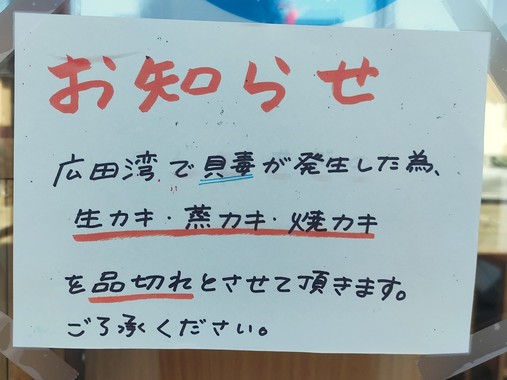 お知らせ
広田湾で貝毒が発生した為、
生カキ・蒸カキ・焼カキ
を品切れとさせて頂きます。
ご了承ください。